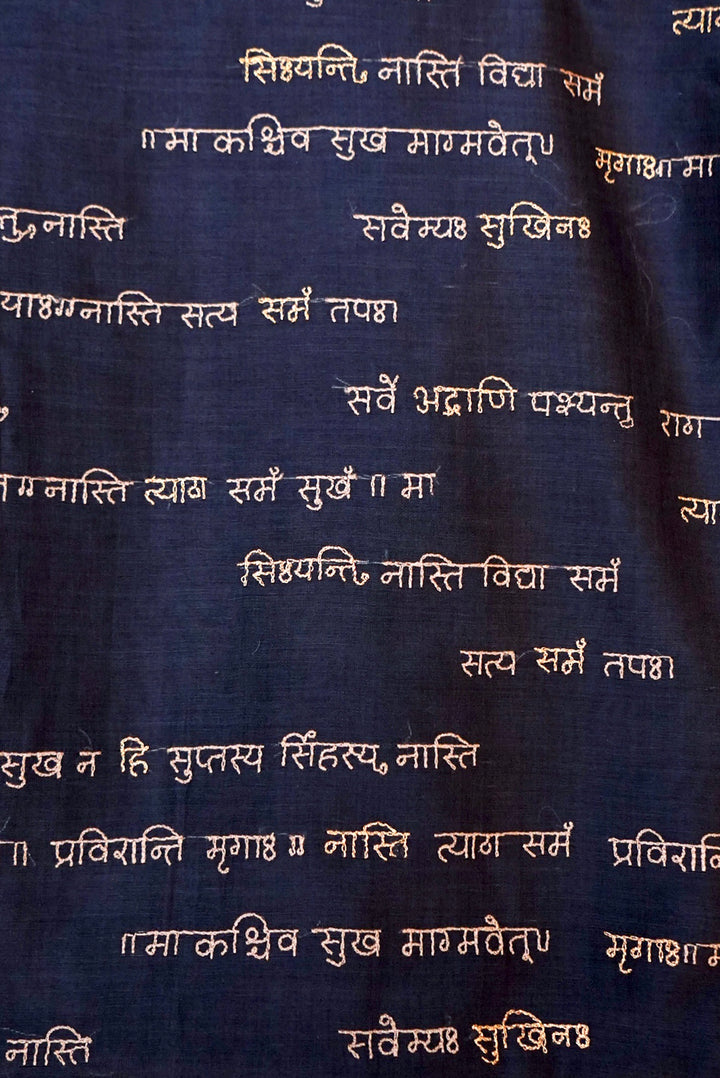 त्या
सिध्यन्ति, नास्ति विद्या समँ
॥ मा कश्चिव सुख माग्मवेत् ॥
मृगाः ॥ मा
तु, नास्ति
सवेम्यः सुखिनः
याः ॥ नास्ति सत्य समँ तपः ।
सर्वे भद्राणि पश्यन्तु राग
॥ नास्ति त्याग समँ सुखँ ॥ मा
त्या
सिध्यन्ति, नास्ति विद्या समँ
सत्य समँ तपः ।
सुख न हि सुप्तस्य सिंहस्य, नास्ति
॥ प्रविशन्ति मृगाः ॥ नास्ति त्याग समँ प्रविशन्ति
॥ मा कश्चिव सुख माग्मवेत् ॥
मृगाः ॥ म
नास्ति
सवेम्यः सुखिनः